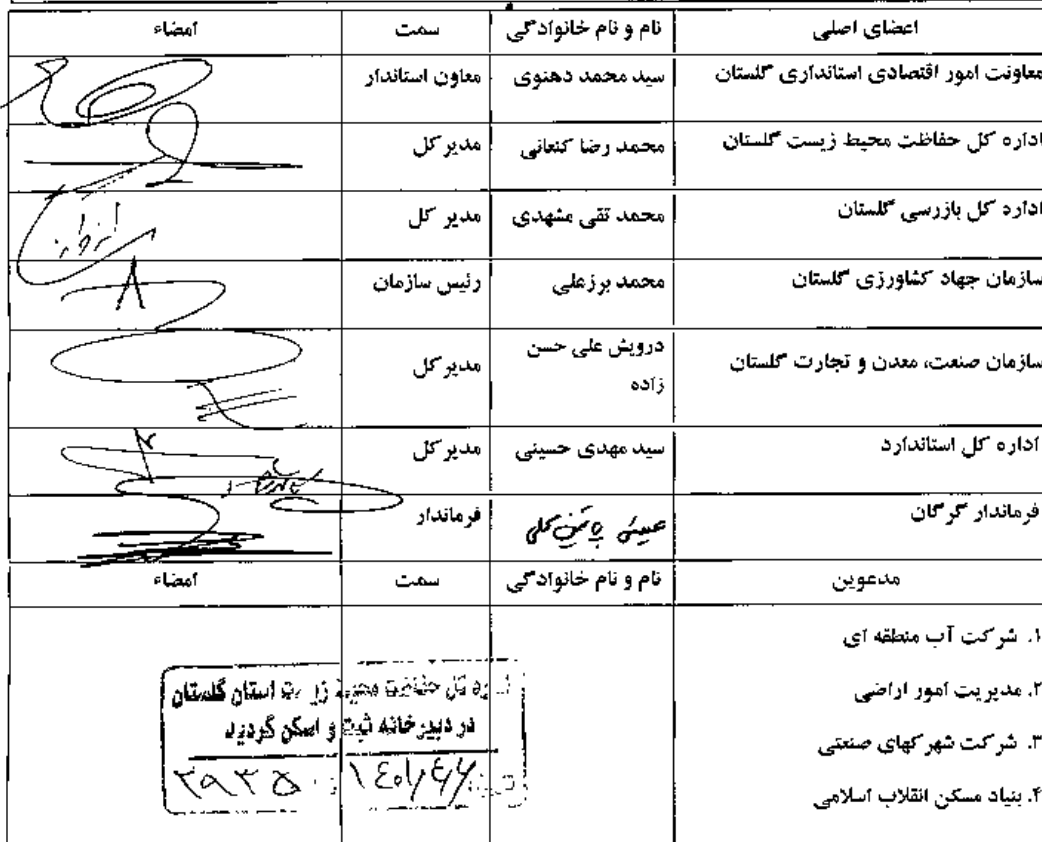 اعضای اصلی نام و نام خانوادگی سمت امضاء
معاونت امور اقتصادی استانداری گلستان سید محمد دهنوی معاون استاندار
اداره کل حفاظت محیط زیست گلستان محمد رضا کنعانی مدیر کل
اداره کل بازرسی گلستان محمد تقی مشهدی مدیر کل
سازمان جهاد کشاورزی گلستان محمد برزعلی رئیس سازمان
سازمان صنعت، معدن و تجارت گلستان درویش علی حسن مدیر کل
زاده
اداره کل استاندارد سید مهدی حسینی مدیر کل
فرماندار گرگان فرماندار
مدعوین نام و نام خانوادگی سمت امضاء
۱. شرکت آب منطقه ای
۲. مدیریت امور اراضی
۳. شرکت شهرکهای صنعتی
۴. بنیاد مسکن انقلاب اسلامی
اداره کل حفاظت محیط زیست استان گلستان
در دبیرخانه ثبت و اسکن گردید